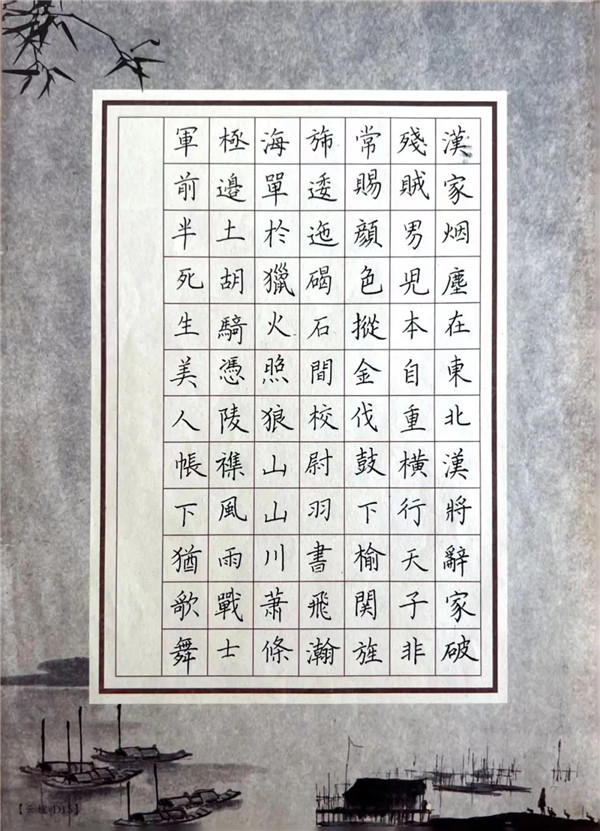 漢家烟塵在東北漢將辭家破
殘賊男兒本自重橫行天子非
常賜顏色摐金伐鼓下榆関旌
斾逶迤碣石間校尉羽書飛瀚
海單於獵火照狼山山川蕭條
極邊土胡騎憑陵襍風雨戰士
軍前半死生美人帳下猶歌舞